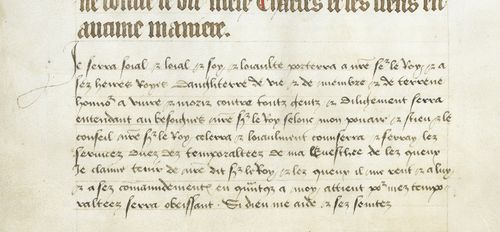 ne soit le dit livre Charles et les siens en
aucune maniere.
Je serra foial & loial & foy & loiaulte porterra a nre Sr le Roy & a
sez heires Royes Dangliterre de vie & de membre & de terrene
honor a viure & morir contre toutz gentz & diligement serra
entendant au besoignes nre sr le Roy selonc mon pouair & sieu & le
conseil nre sr le Roy celerra & loiaulment conuserra & ferray lez
seruices duez dez temporalteez de ma Euesthee de lez queux
Je clayme tenir de nre dit sr le Roy & lez queux il me rent & a luy
& a sez comaundementz en qu a moy attient por mez tempo
ralteez serra obeissant. Si dieu me aide & sez seintez